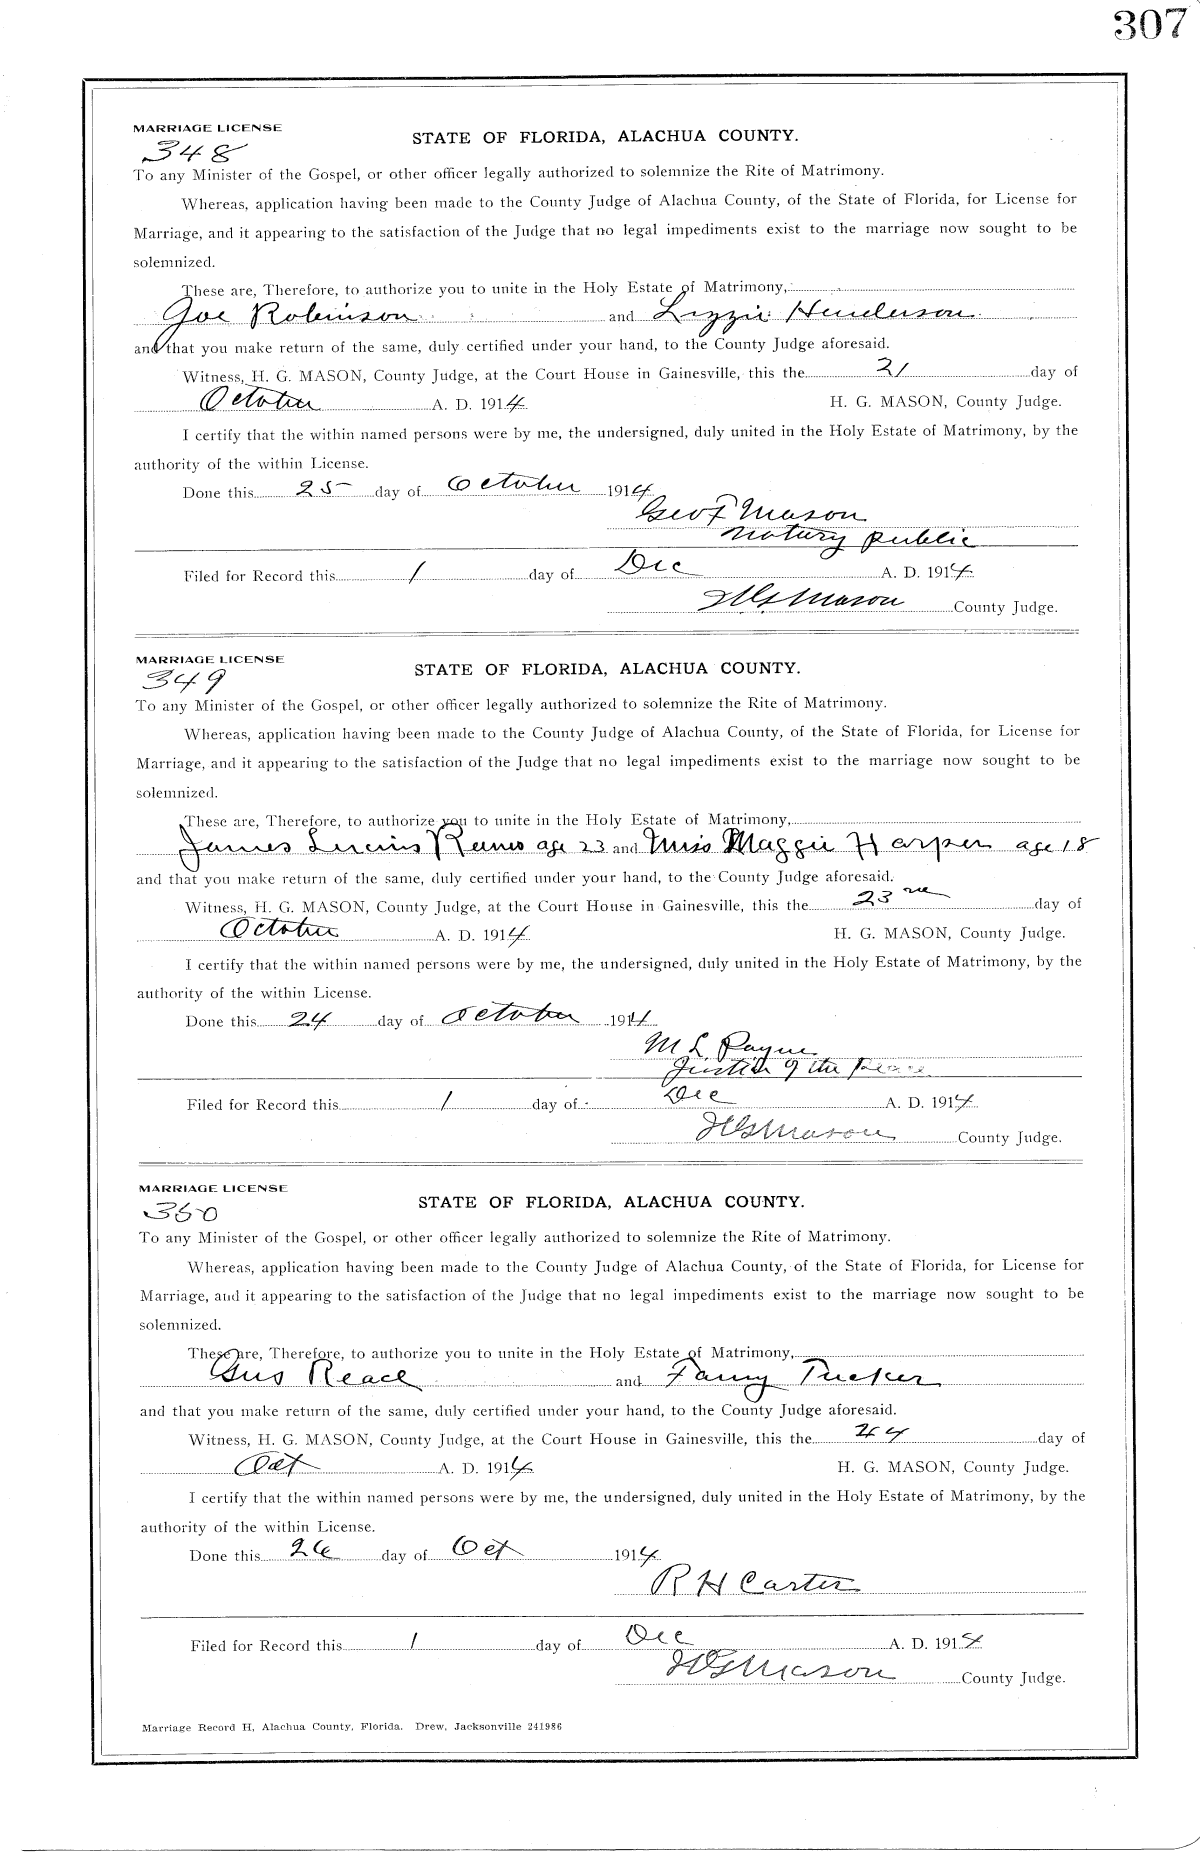 307
MARRIAGE LICENSE
348
STATE OF FLORIDA, ALACHUA COUNTY.
To any Minister of the Gospel, or other officer legally authorized to solemnize the Rite of Matrimony.
Whereas, application having been made to the County Judge of Alachua County, of the State of Florida, for License for
Marriage, and it appearing to the satisfaction of the Judge that no legal impediments exist to the marriage now sought to be
solemnized.
These are, Therefore, to authorize you to unite in the Holy Estate of Matrimony,
Joe Robinson and Lizzie Henderson
and that you make return of the same, duly certified under your hand, to the County Judge aforesaid.
Witness, H. G. MASON, County Judge, at the Court House in Gainesville, this the 21 day of
October A. D. 1914 H. G. MASON, County Judge.
I certify that the within named persons were by me, the undersigned, duly united in the Holy Estate of Matrimony, by the
authority of the within License.
Done this 25 day of October 1914
Geo F Mason
Notary Public
Filed for Record this 1 day of Dec A. D. 1914
H G Mason County Judge.
MARRIAGE LICENSE
349
STATE OF FLORIDA, ALACHUA COUNTY.
To any Minister of the Gospel, or other officer legally authorized to solemnize the Rite of Matrimony.
Whereas, application having been made to the County Judge of Alachua County, of the State of Florida, for License for
Marriage, and it appearing to the satisfaction of the Judge that no legal impediments exist to the marriage now sought to be
solemnized.
These are, Therefore, to authorize you to unite in the Holy Estate of Matrimony,
James age 23 and Miss Maggie Harper age 18
and that you make return of the same, duly certified under your hand, to the County Judge aforesaid.
Witness, H. G. MASON, County Judge, at the Court House in Gainesville, this the 23 day of
October A. D. 1914 H. G. MASON, County Judge.
I certify that the within named persons were by me, the undersigned, duly united in the Holy Estate of Matrimony, by the
authority of the within License.
Done this 24 day of October 1914
M L Payne
Justice of the Peace
Filed for Record this 1 day of Dec A. D. 1914
H G Mason County Judge.
MARRIAGE LICENSE
350
STATE OF FLORIDA, ALACHUA COUNTY.
To any Minister of the Gospel, or other officer legally authorized to solemnize the Rite of Matrimony.
Whereas, application having been made to the County Judge of Alachua County, of the State of Florida, for License for
Marriage, and it appearing to the satisfaction of the Judge that no legal impediments exist to the marriage now sought to be
solemnized.
These are, Therefore, to authorize you to unite in the Holy Estate of Matrimony,
Gus and Fanny Tucker
and that you make return of the same, duly certified under your hand, to the County Judge aforesaid.
Witness, H. G. MASON, County Judge, at the Court House in Gainesville, this the 24 day of
Oct A. D. 1914 H. G. MASON, County Judge.
I certify that the within named persons were by me, the undersigned, duly united in the Holy Estate of Matrimony, by the
authority of the within License.
Done this day of Oct 1914
R H Carter
Filed for Record this 1 day of Dec A. D. 1914
H G Mason County Judge.
Marriage Record H, Alachua County, Florida. Drew, Jacksonville 241986